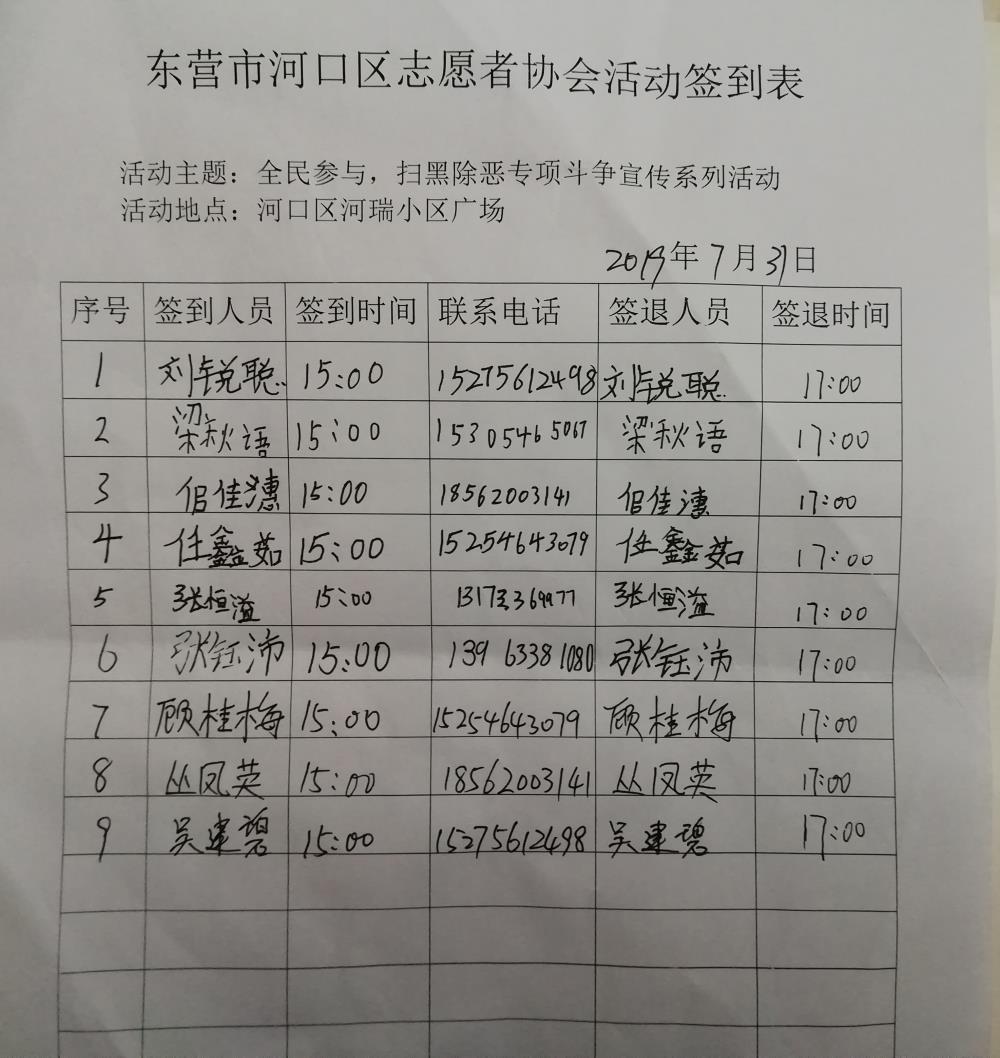 东营市河口区志愿者协会活动签到表
活动主题：全民参与，扫黑除恶专项斗争宣传系列活动
活动地点：河口区河瑞小区广场
2019年7月31日
序号 签到人员 签到时间 联系电话 签退人员 签退时间
1 刘锐聪 15:00 15275612498 刘锐聪 17:00
2 梁秋语 15:00 15305465067 梁秋语 17:00
3 佳 15:00 18562003141 佳 17:00
4 任鑫茹 15:00 15254643079 任鑫茹 17:00
5 张恒溢 15:00 张恒溢 17:00
6 张钰沛 15:00 13963381080 张钰沛 17:00
7 顾桂梅 15:00 15254643079 顾桂梅 17:00
8 丛凤英 15:00 18562003141 丛凤英 17:00
9 吴建碧 15:00 15275612498 吴建碧 17:00